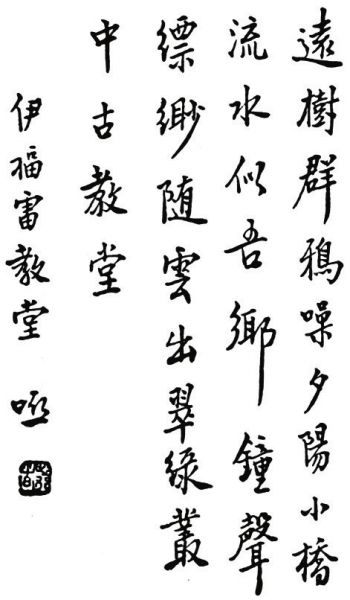 遠樹群鴉噪夕陽小橋
流水似吾鄉鐘聲
縹緲随雲出翠綠叢
中古教堂
伊福雷教堂 啞